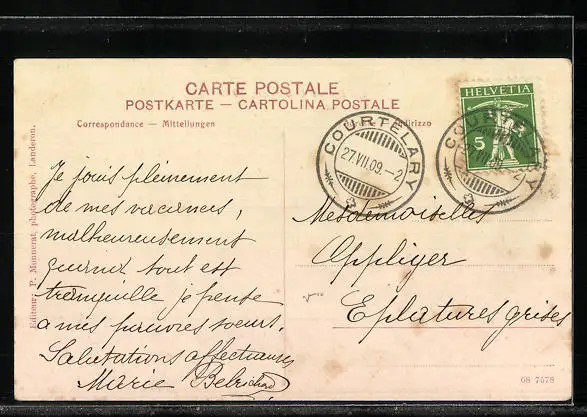 CARTE POSTALE
POSTKARTE — CARTOLINA POSTALE
Correspondance — Mitteilungen
Indirizzo
HELVETIA
5
COURTELARY
27.VII.09.-2
COURTELARY
27.VII.09.-2
Je jouis pleinement
de mes vacances,
malheureusement
quand tout est
tranquille je pense
a mes pauvres soeurs.
Salutations affectueuses
Marie Belrichard
Mesdemoiselles
Oppliger
Eplatures grises
Editeur: P. Monnerat, photographe, Landeron.
68 7578